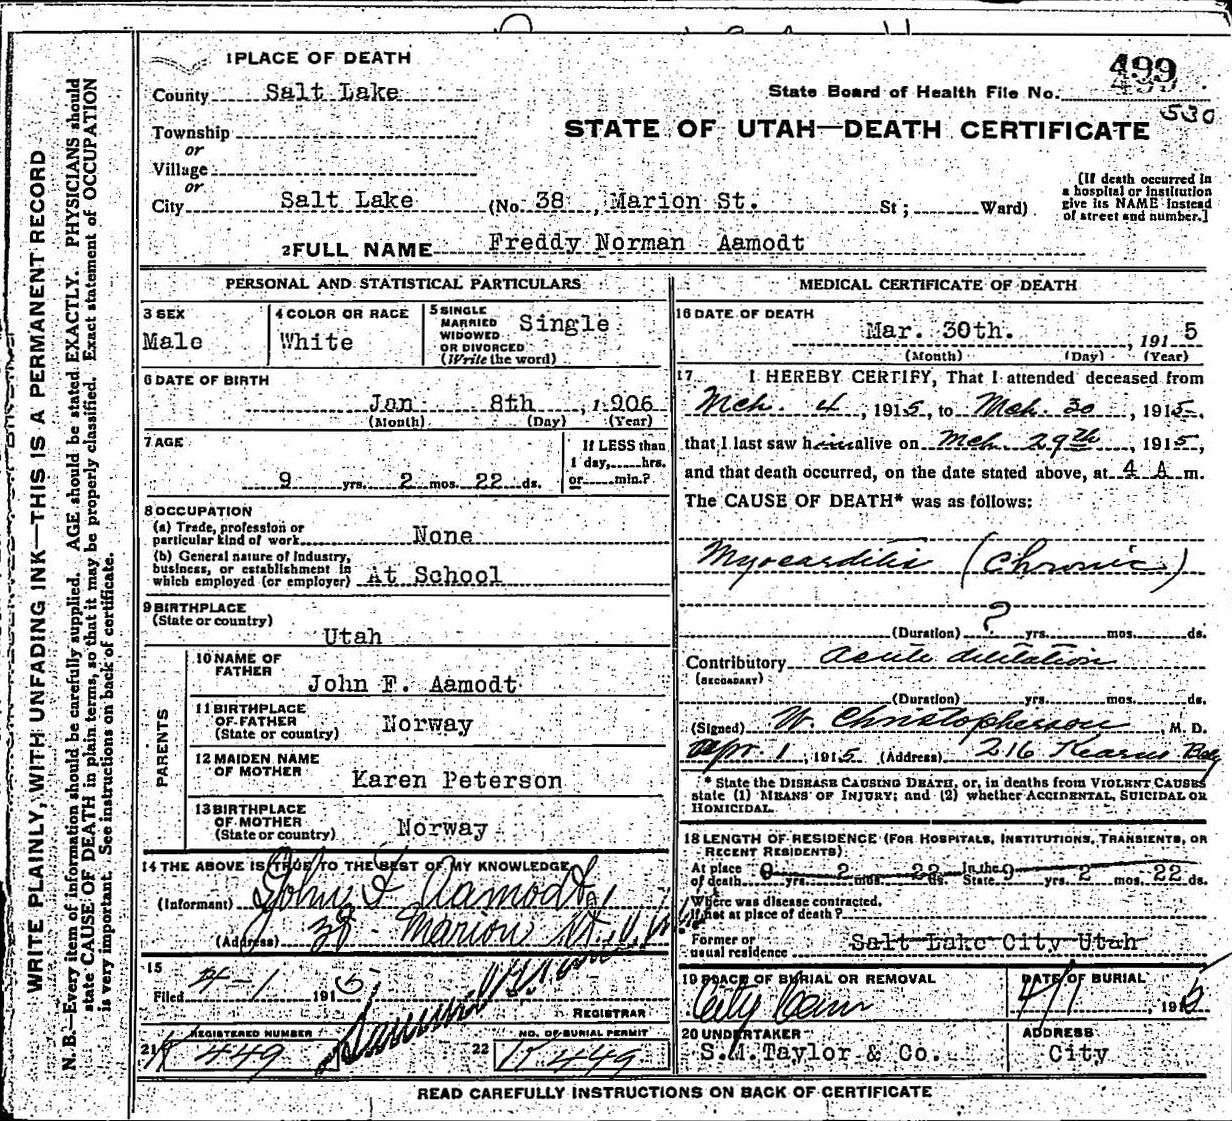 499
530
1 PLACE OF DEATH
County Salt Lake
State Board of Health File No.
Township
or
Village
or
City Salt Lake (No. 38, Marion St. St ; Ward)
STATE OF UTAH—DEATH CERTIFICATE
(If death occurred in
a hospital or institution
give its NAME instead
of street and number.]
2 FULL NAME Freddy Norman Aamodt
PERSONAL AND STATISTICAL PARTICULARS
3 SEX
Male
4 COLOR OR RACE
White
5 SINGLE
MARRIED
WIDOWED
OR DIVORCED
(Write the word)
Single
6 DATE OF BIRTH
Jan 8th, 1906
(Month) (Day) (Year)
7 AGE
9 yrs. 2 mos. 22 ds.
If LESS than
1 day, hrs.
or min.?
8 OCCUPATION
(a) Trade, profession or
particular kind of work None
(b) General nature of industry,
business, or establishment in
which employed (or employer) At School
9 BIRTHPLACE
(State or country)
Utah
PARENTS
10 NAME OF
FATHER
John F. Aamodt
11 BIRTHPLACE
OF FATHER
(State or country)
Norway
12 MAIDEN NAME
OF MOTHER
Karen Peterson
13 BIRTHPLACE
OF MOTHER
(State or country)
Norway
14 THE ABOVE IS TRUE TO THE BEST OF MY KNOWLEDGE
(Informant) John F Aamodt
(Address) 38 Marion St.
15
Filed 4-1 1915
REGISTRAR
REGISTERED NUMBER
21 449
NO. OF BURIAL PERMIT
22 449
MEDICAL CERTIFICATE OF DEATH
16 DATE OF DEATH
Mar. 30th. , 191 5
(Month) (Day) (Year)
17 I HEREBY CERTIFY, That I attended deceased from
Mch. 4, 1915, to Mch. 30, 1915,
that I last saw him alive on Mch 29th, 1915,
and that death occurred, on the date stated above, at 4 A m.
The CAUSE OF DEATH* was as follows:
Myocarditis (Chronic)
(Duration) ? yrs. mos. ds.
Contributory acute dilitation
(SECONDARY)
(Duration) yrs. mos. ds.
(Signed) W. Christopherson, M. D.
Apr. 1, 1915 (Address) 216 Kearns Bldg
* State the DISEASE CAUSING DEATH, or, in deaths from VIOLENT CAUSES
state (1) MEANS OF INJURY; and (2) whether ACCIDENTAL, SUICIDAL OR
HOMICIDAL.
18 LENGTH OF RESIDENCE (FOR HOSPITALS, INSTITUTIONS, TRANSIENTS, OR
RECENT RESIDENTS)
At place
of death 9 yrs. 2 mos. 22 ds. In the
State 9 yrs. 2 mos. 22 ds.
Where was disease contracted.
If not at place of death?
Former or
usual residence Salt Lake City Utah
19 PLACE OF BURIAL OR REMOVAL
City Cem
DATE OF BURIAL
4/1, 191
20 UNDERTAKER
S.M. Taylor & Co.
ADDRESS
City
READ CAREFULLY INSTRUCTIONS ON BACK OF CERTIFICATE
WRITE PLAINLY, WITH UNFADING INK—THIS IS A PERMANENT RECORD
N. B.—Every item of information should be carefully supplied. AGE should be stated EXACTLY. PHYSICIANS should
state CAUSE OF DEATH in plain terms, so that it may be properly classified. Exact statement of OCCUPATION
is very important. See instructions on back of certificate.